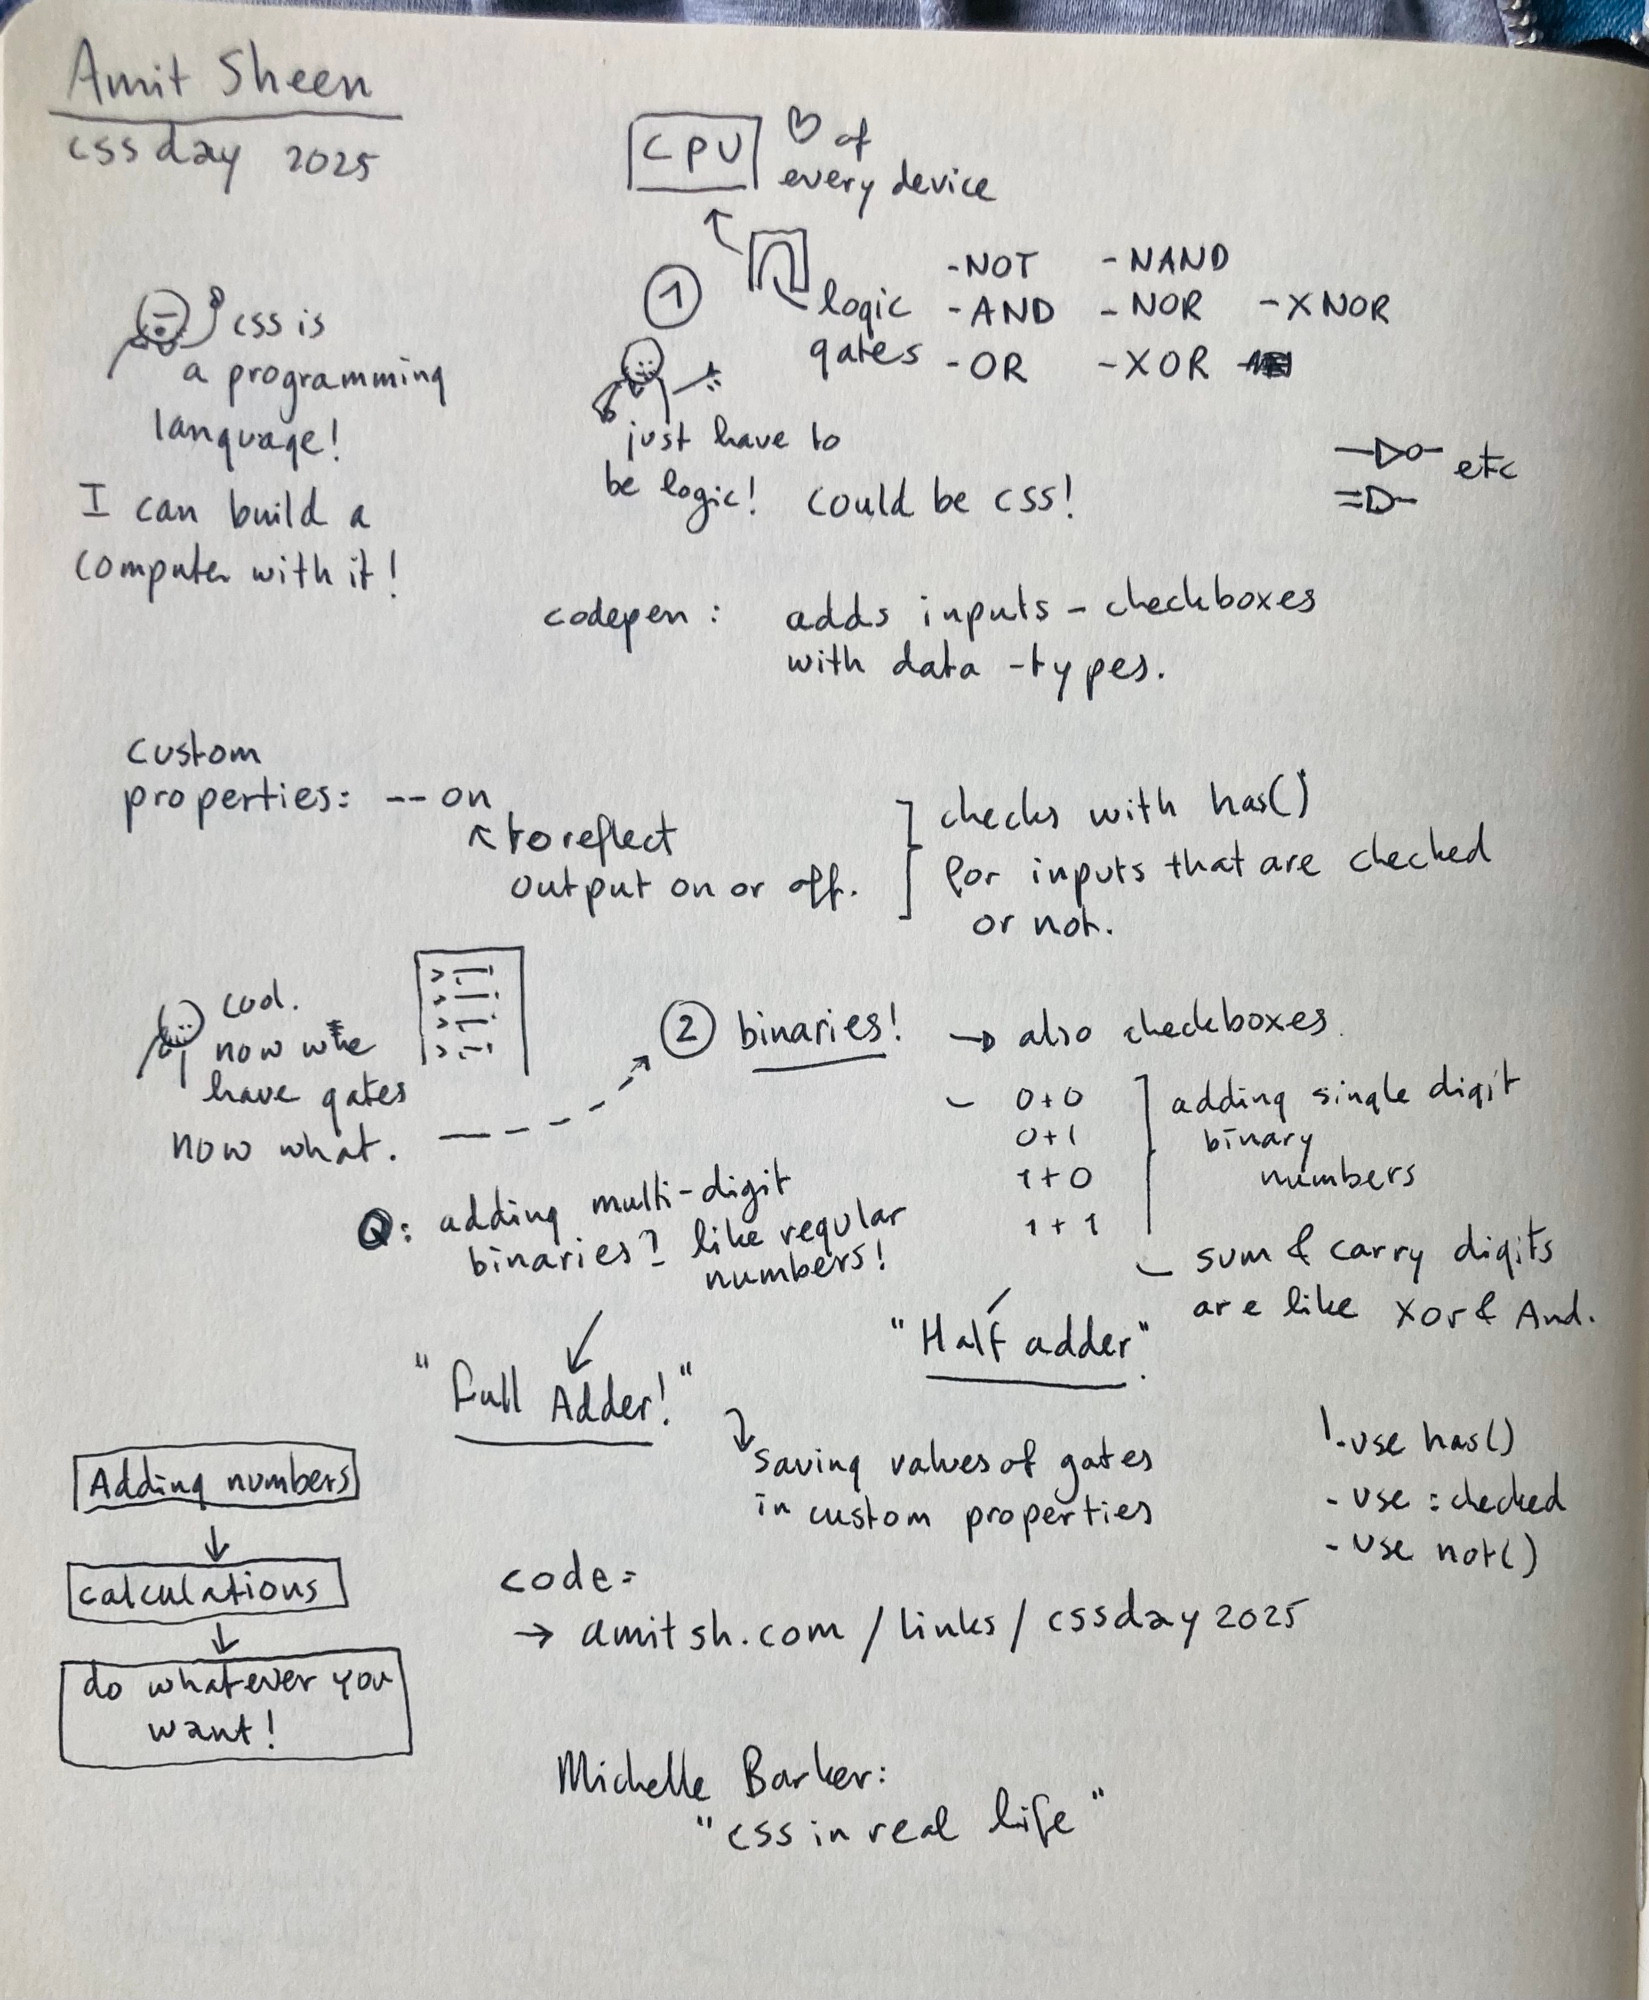 Amit Sheen
css day 2025
CPU
♡ of
every device
css is
a programming
language!
I can build a
computer with it!
1
logic
gates
-NOT -NAND
-AND -NOR -XNOR
-OR -XOR
just have to
be logic! could be css!
etc
codepen: adds inputs - checkboxes
with data-types.
custom
properties: --on
to reflect
output on or off.
checks with has()
for inputs that are checked
or not.
cool.
now we
have gates
now what.
2 binaries! → also checkboxes.
- 0+0
0+1
1+0
1+1
adding single digit
binary
numbers
- sum & carry digits
are like Xor & And.
Q: adding multi-digit
binaries? like regular
numbers!
"Half adder"
"Full Adder!"
saving values of gates
in custom properties
!-use has()
- use :checked
- use not()
Adding numbers
calculations
do whatever you
want!
code:
→ amitsh.com/links/cssday2025
Michelle Barker:
"css in real life"